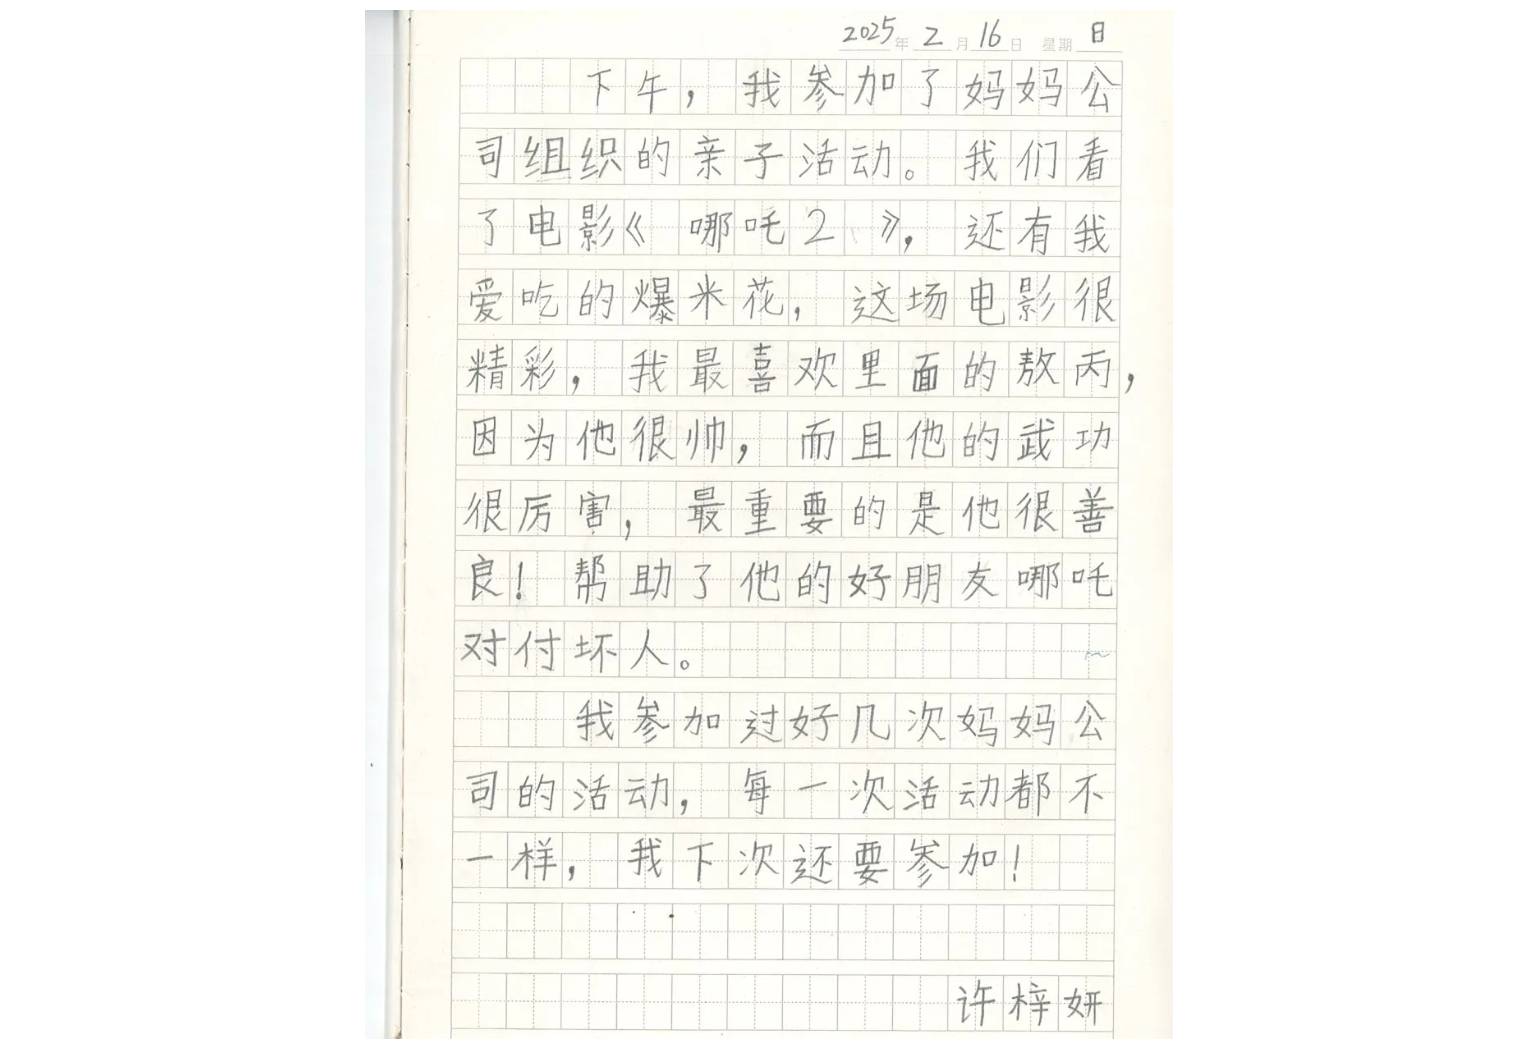 2025年2月16日 星期日
下午，我参加了妈妈公
司组织的亲子活动。我们看
了电影《哪吒2》，还有我
爱吃的爆米花，这场电影很
精彩，我最喜欢里面的敖丙，
因为他很帅，而且他的武功
很厉害，最重要的是他很善
良！帮助了他的好朋友哪吒
对付坏人。
我参加过好几次妈妈公
司的活动，每一次活动都不
一样，我下次还要参加！
许梓妍